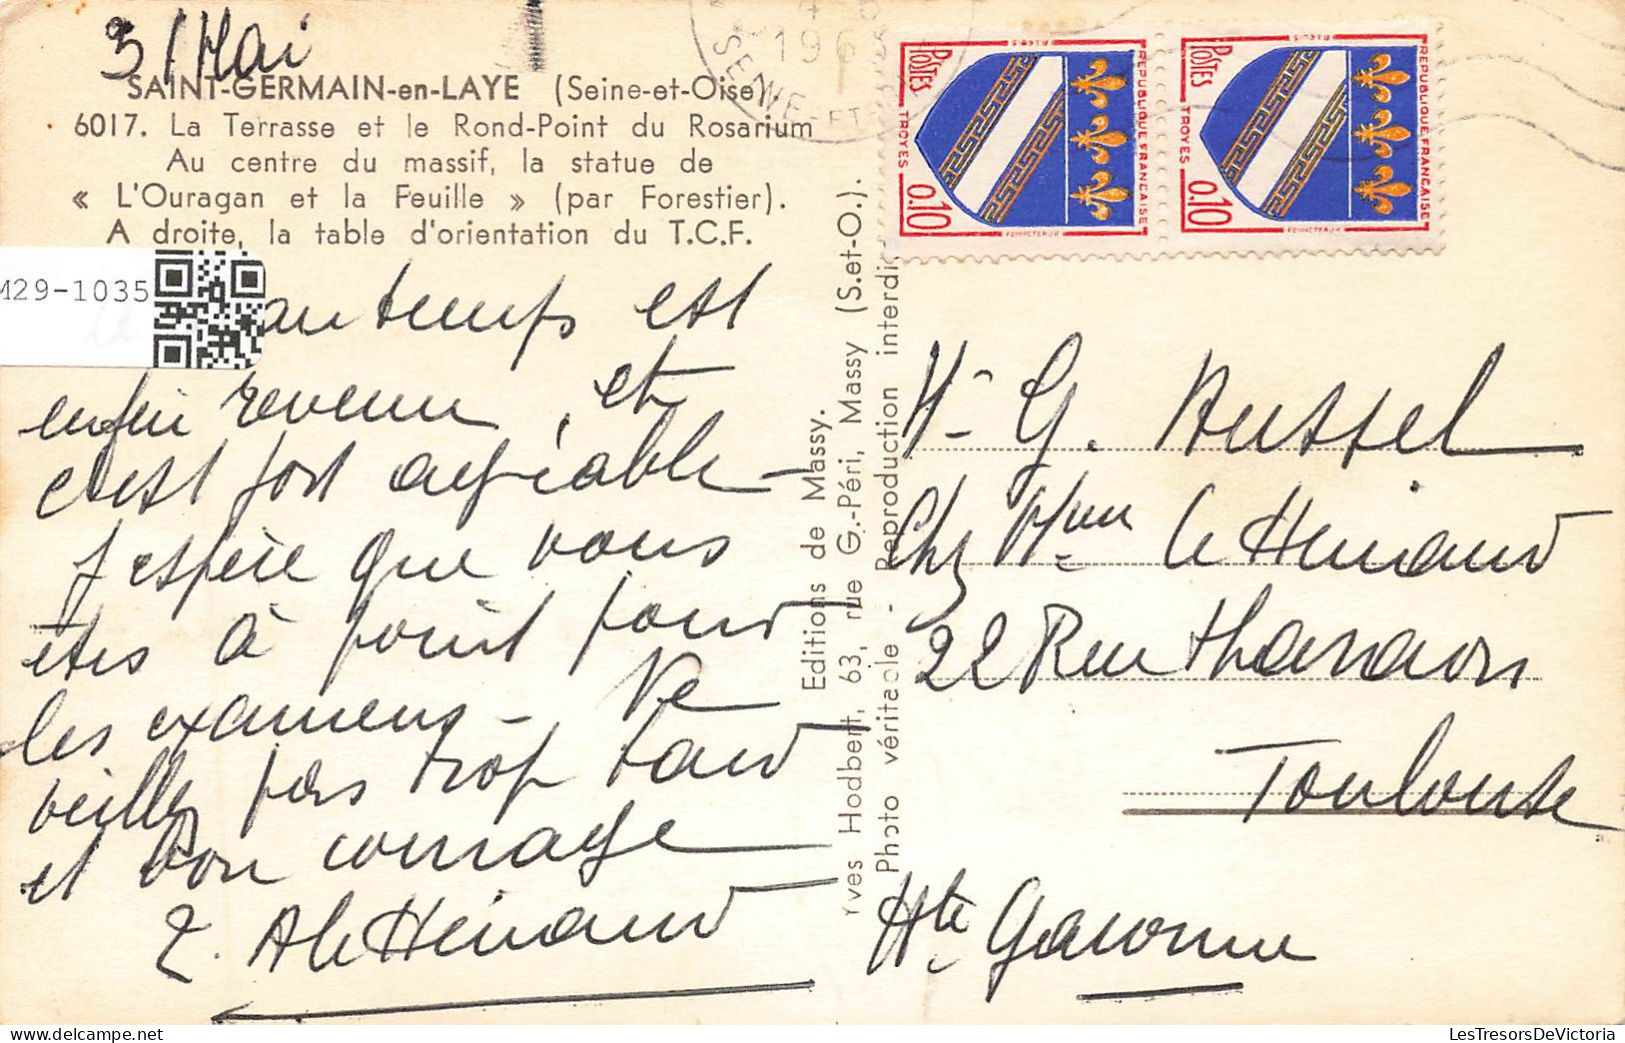 3/Mai
SAINT-GERMAIN-en-LAYE (Seine-et-Oise)
6017. La Terrasse et le Rond-Point du Rosarium
Au centre du massif, la statue de
« L'Ouragan et la Feuille » (par Forestier).
A droite, la table d'orientation du T.C.F.
M29-1035
est
enfin revenu, et
c'est fort agréable -
J'espère que vous
êtes à point pour
les examens - Ne
veillez pas trop tard
et bon courage
Editions de Massy.
Yves Hodbert, 63, rue G.-Péri, Massy (S.et-O.).
Photo véritable - Reproduction interdi
196
SEINE-ET
POSTES
REPUBLIQUE FRANÇAISE
TROYES
0,10
POSTES
REPUBLIQUE FRANÇAISE
TROYES
0,10
G.
Chez Mme le Hénand
22 Rue
Toulouse
Hte Garonne
LesTresorsDeVictoria